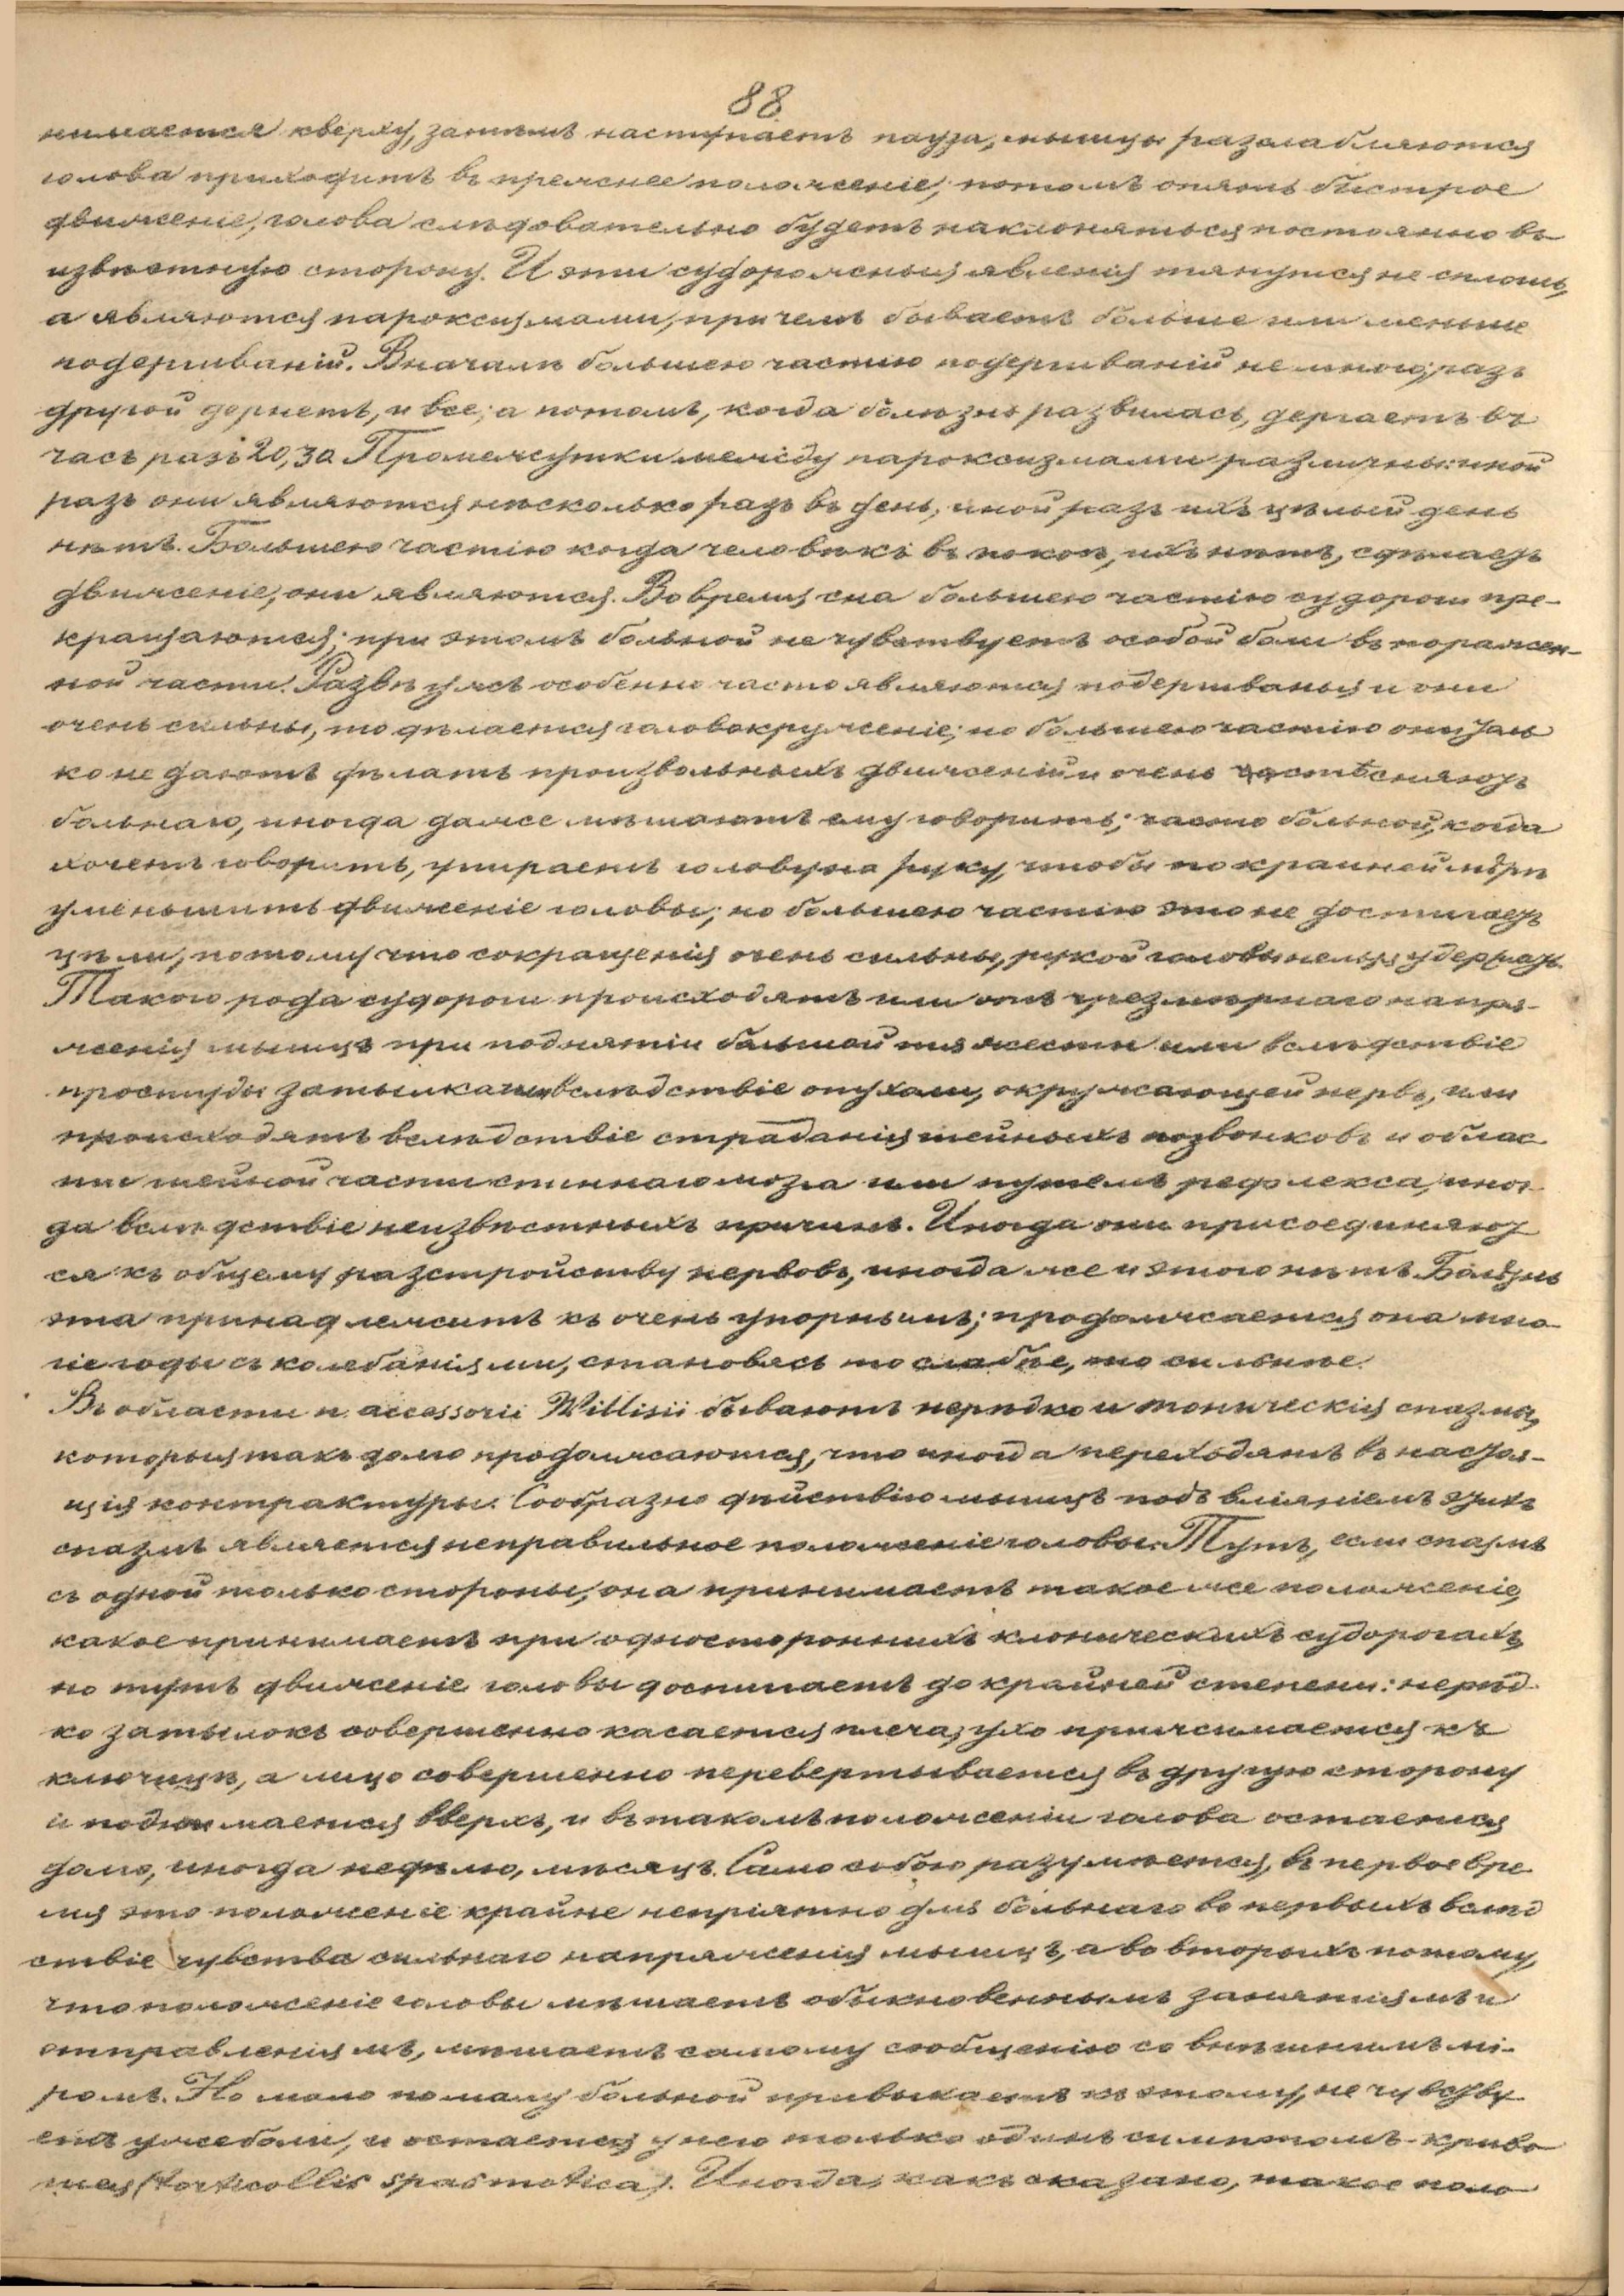 88
нимается кверху, затѣмъ наступаетъ пауза, мышцы разслабляются
голова приходитъ въ прежнее положеніе, потомъ опять быстрое
движеніе, голова слѣдовательно будетъ наклоняться постоянно въ
извѣстную сторону. И эти судорожныя явленія тянутся не сплошь,
а являются пароксизмами, причемъ бываетъ больше или меньше
подергиваній. Вначалѣ большею частію подергиваній не много; разъ
другой дернетъ, и все; а потомъ, когда болѣзнь развилась, дергаетъ въ
часъ разъ 20, 30. Промежутки между пароксизмами различны: иной
разъ они являются нѣсколько разъ въ день, иной разъ ихъ цѣлый день
нѣтъ. Большею частію когда человѣкъ въ покоѣ, ихъ нѣтъ, сдѣлаетъ
движеніе, они являются. Во время сна большею частію судороги пре-
кращаются; при этомъ больной не чувствуетъ особой боли въ поражен-
ной части. Развѣ ужъ особенно часто являются подергиванья и они
очень сильны, то дѣлается головокруженіе; но большею частію они толь
ко не даютъ дѣлать произвольныхъ движеній и очень стѣсняютъ
больнаго, иногда даже мѣшаютъ ему говорить; часто больной, когда
хочетъ говорить, упираетъ голову на руку, чтобы по крайней мѣрѣ
уменьшить движеніе головы; но большею частію это не достигаетъ
цѣли, потому что сокращенія очень сильны, рукой головы нельзя удержать.
Такого рода судороги происходятъ или отъ чрезмѣрнаго напря-
женія мышцъ при поднятіи большой тяжести или вслѣдствіе
простуды затылка или вслѣдствіе опухоли, окружающей нервъ, или
происходятъ вслѣдствіе страданія шейныхъ позвонковъ и облас
ти шейной части спиннаго мозга или путемъ рефлекса, иног
да вслѣдствіе неизвѣстныхъ причинъ. Иногда они присоединяют
ся къ общему разстройству нервовъ, иногда же и этого нѣтъ. Болѣзнь
эта принадлежитъ къ очень упорнымъ; продолжается она мно
гіе годы съ колебаніями, становясь то слабѣе, то сильнѣе.
Въ области n. accessorii Willisii бываютъ нерѣдко и тоническія спазмы,
которыя такъ долго продолжаются, что иногда переходятъ въ настоя-
щія контрактуры. Сообразно дѣйствію мышцъ подъ вліяніемъ этихъ
спазмъ является неправильное положеніе головы. Тутъ, если спазмъ
съ одной только стороны, она принимаетъ такое же положеніе,
какое принимаетъ при одностороннихъ клоническихъ судорогахъ,
но тутъ движеніе головы достигаетъ до крайней степени: нерѣд-
ко затылокъ совершенно касается плеча, ухо прижимается къ
ключицѣ, а лицо совершенно перевертывается въ другую сторону
и поднимается вверхъ, и въ такомъ положеніи голова остается
долго, иногда недѣлю, мѣсяцъ. Само собою разумѣется, въ первое вре
мя это положеніе крайне непріятно для больнаго во первыхъ вслѣд
ствіе чувства сильнаго напряженія мышцъ, а во вторыхъ потому,
что положеніе головы мѣшаетъ обыкновеннымъ занятіямъ и
отправленіямъ, мѣшаетъ самому сообщенію со внѣшнимъ мі-
ромъ. Но мало по малу больной привыкаетъ къ этому, не чувству-
етъ уже боли, и остается у него только одинъ симптомъ - криво
шея (torticollis spasmotica). Иногда, какъ сказано, такое поло